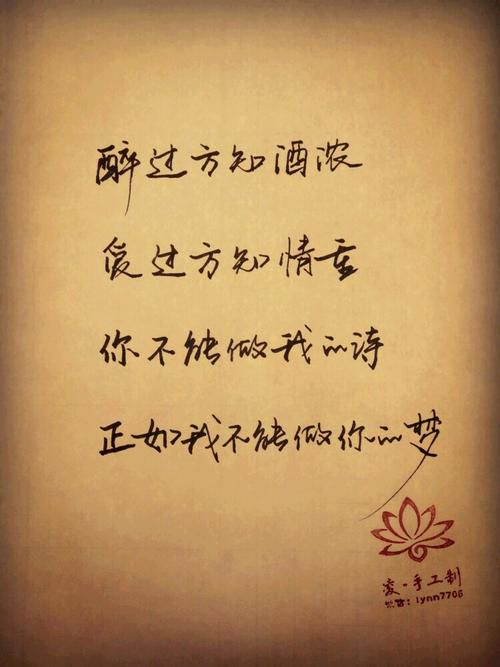 醉过方知酒浓
爱过方知情重
你不能做我的诗
正如我不能做你的梦
凌·手工制
lynn7706